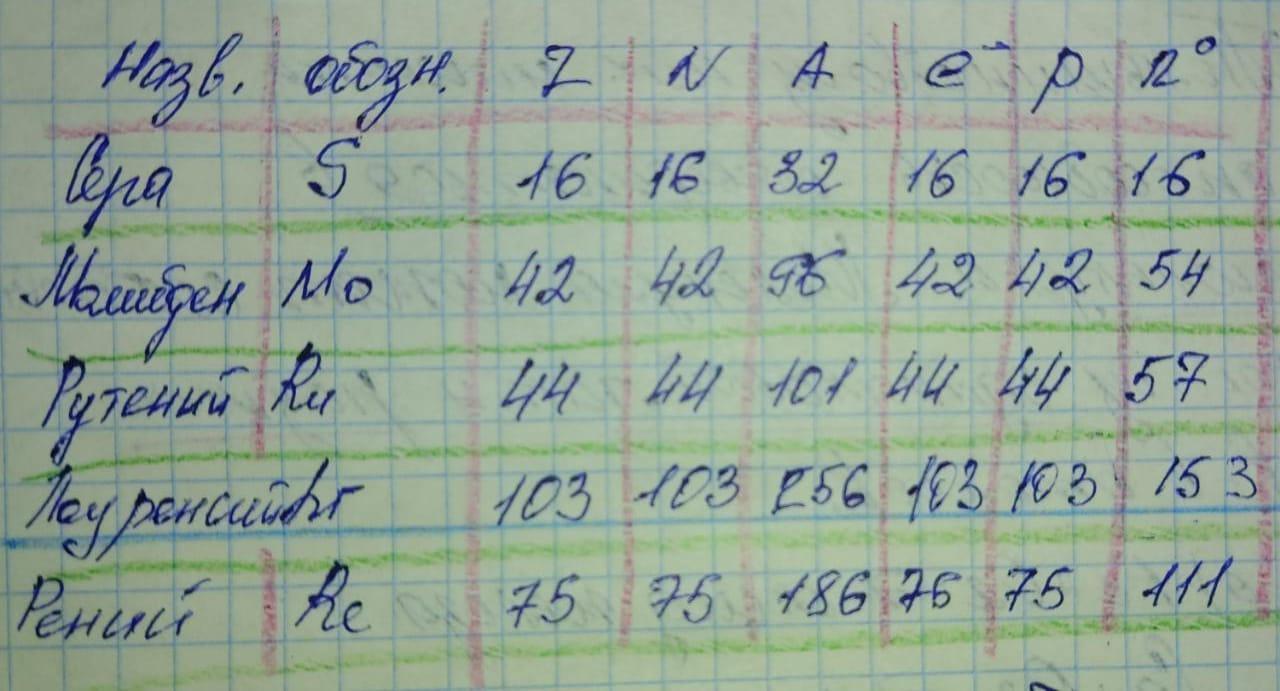 Назв. обозн. Z N A e⁻ p n⁰
Сера S 16 16 32 16 16 16
Молибден Mo 42 42 96 42 42 54
Рутений Ru 44 44 101 44 44 57
Лоуренсий 103 103 256 103 103 153
Рений Re 75 75 186 75 75 111